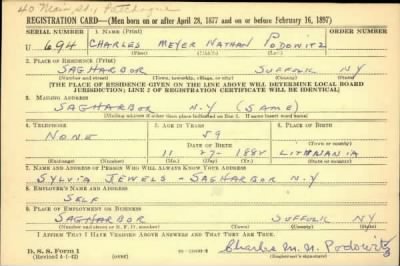 40 Main St., Patchogue
REGISTRATION CARD—(Men born on or after April 28, 1877 and on or before February 16, 1897)
SERIAL NUMBER 1. NAME (Print)
U 694 CHARLES MEYER NATHAN PODOWITZ
2. PLACE OF RESIDENCE (Print)
SAG HARBOR SUFFOLK NY
(Number and street) (Town, township, village, or city) (County) (State)
[THE PLACE OF RESIDENCE GIVEN ON THE LINE ABOVE WILL DETERMINE LOCAL BOARD
JURISDICTION; LINE 2 OF REGISTRATION CERTIFICATE WILL BE IDENTICAL]
3. MAILING ADDRESS
SAGHARBOR N.Y (SAME)
[Mailing address if other than place indicated on line 2. If same insert word same]
4. TELEPHONE 5. AGE IN YEARS 6. PLACE OF BIRTH
NONE 59
DATE OF BIRTH
11 27 1882 LITHUANIA
(Exchange) (Number) (Mo.) (Day) (Yr.) (State or country)
7. NAME AND ADDRESS OF PERSON WHO WILL ALWAYS KNOW YOUR ADDRESS
SYLVIA JEWELS - SAGHARBOR N.Y
8. EMPLOYER'S NAME AND ADDRESS
SELF
9. PLACE OF EMPLOYMENT OR BUSINESS
SAGHARBOR SUFFOLK NY
(Number and street or R. F. D. number) (Town) (County) (State)
I AFFIRM THAT I HAVE VERIFIED ABOVE ANSWERS AND THAT THEY ARE TRUE.
D. S. S. Form 1
(Revised 4-1-42) (over) Charles M. N. Podowitz